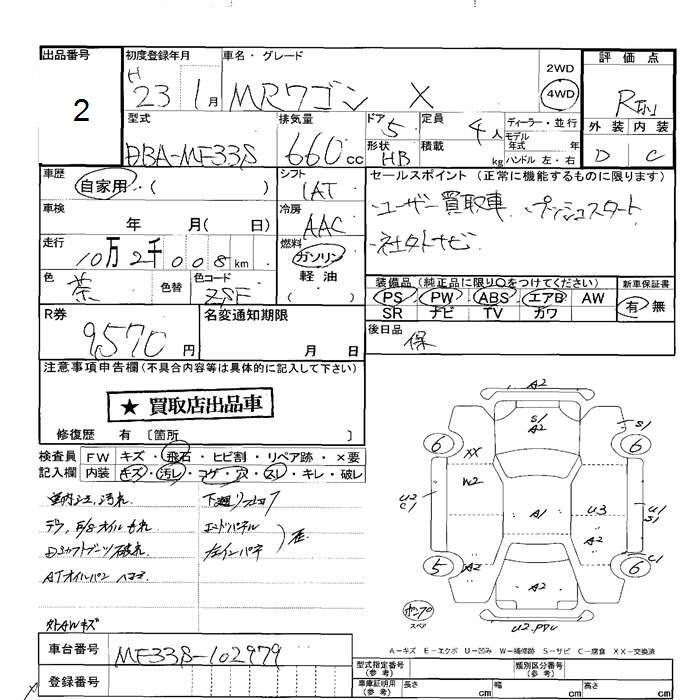 出品番号 初度登録年月 車名・グレード 2WD 評価点
2 H 23 1月 MRワゴン X 4WD
型式 排気量 ドア 定員 ディーラー・並行 外装 内装
DBA-MF33S 660cc 5 4人 モデル年式 年 D C
形状 HB 積載 kg ハンドル 左・右
車歴 自家用・( ) シフト IAT セールスポイント (正常に機能するものに限ります)
車検 年 月( 日) 冷房 AAC ・ユーザー買取車 ・プッシュスタート
走行 10万2千008km 燃料 ガソリン ・社外ナビ
色 茶 色替 色コード ZSF 軽油 ( )
装備品 (純正品に限り○をつけてください) 新車保証書
PS PW ABS エアB AW 有・無
SR ナビ TV カワ
R券 9,570円 名変通知期限 月 日 後日品 保
注意事項申告欄(不具合内容等は具体的に記入して下さい)
★ 買取店出品車
修復歴 有 〔箇所 〕
検査員 FW キズ・飛石・ヒビ割・リペア跡・×要
記入欄 内装 キズ・汚レ・コゲ・穴・スレ・キレ・破レ
室内シミ、汚れ
Dシャフトブーツ破れ
ATオイルパン ヘコミ
エンドパネル
左インパネ
外AWキズ
A2
S1 A2
S1
6 6
XX
W2
U2 C1
A1
U3
U1 S1
A2
A2
C1
5 6
A2
ポンプ スペア
U2
A-キズ E-エクボ U-凹み W-補修跡 S-サビ C-腐食 XX-交換済
車台番号 MF33S-102979
登録番号
型式指定番号(参考) 類別区分番号(参考)
車庫証明用(参考) 長さ cm 幅 cm 高さ cm